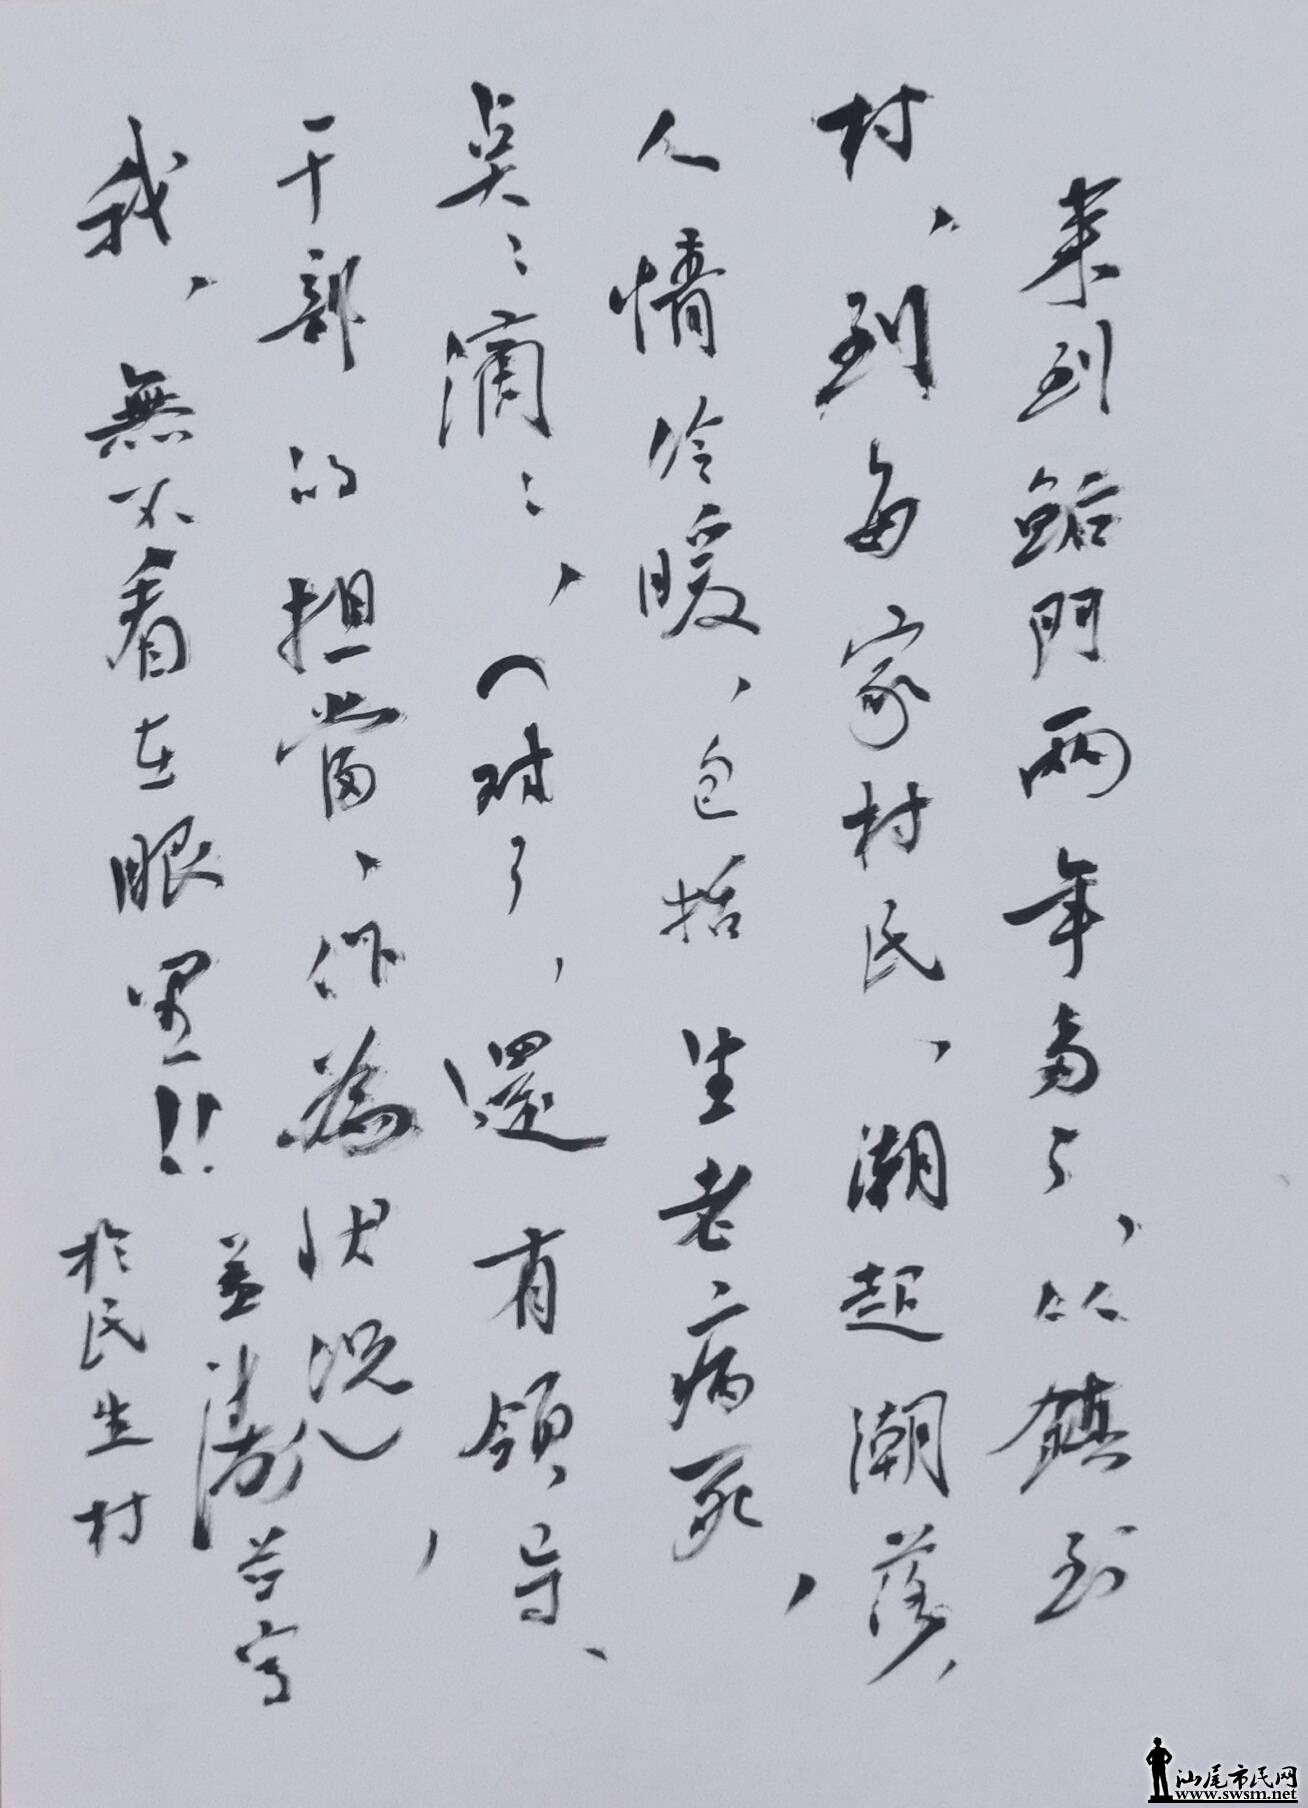 来到鲘門兩年多了，从鎮到
村，到每家村民，潮起潮落，
人情冷暖，包括生老病死，
点点滴滴，（对了，還有領导、
干部的担當、作為状况），
我，無不看在眼里!!
於民生村
汕尾市民网
www.swsm.net